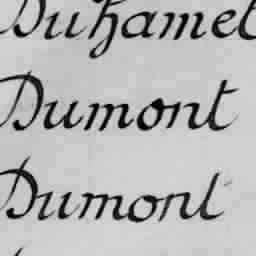 Duhamel
Dumont
Dumont